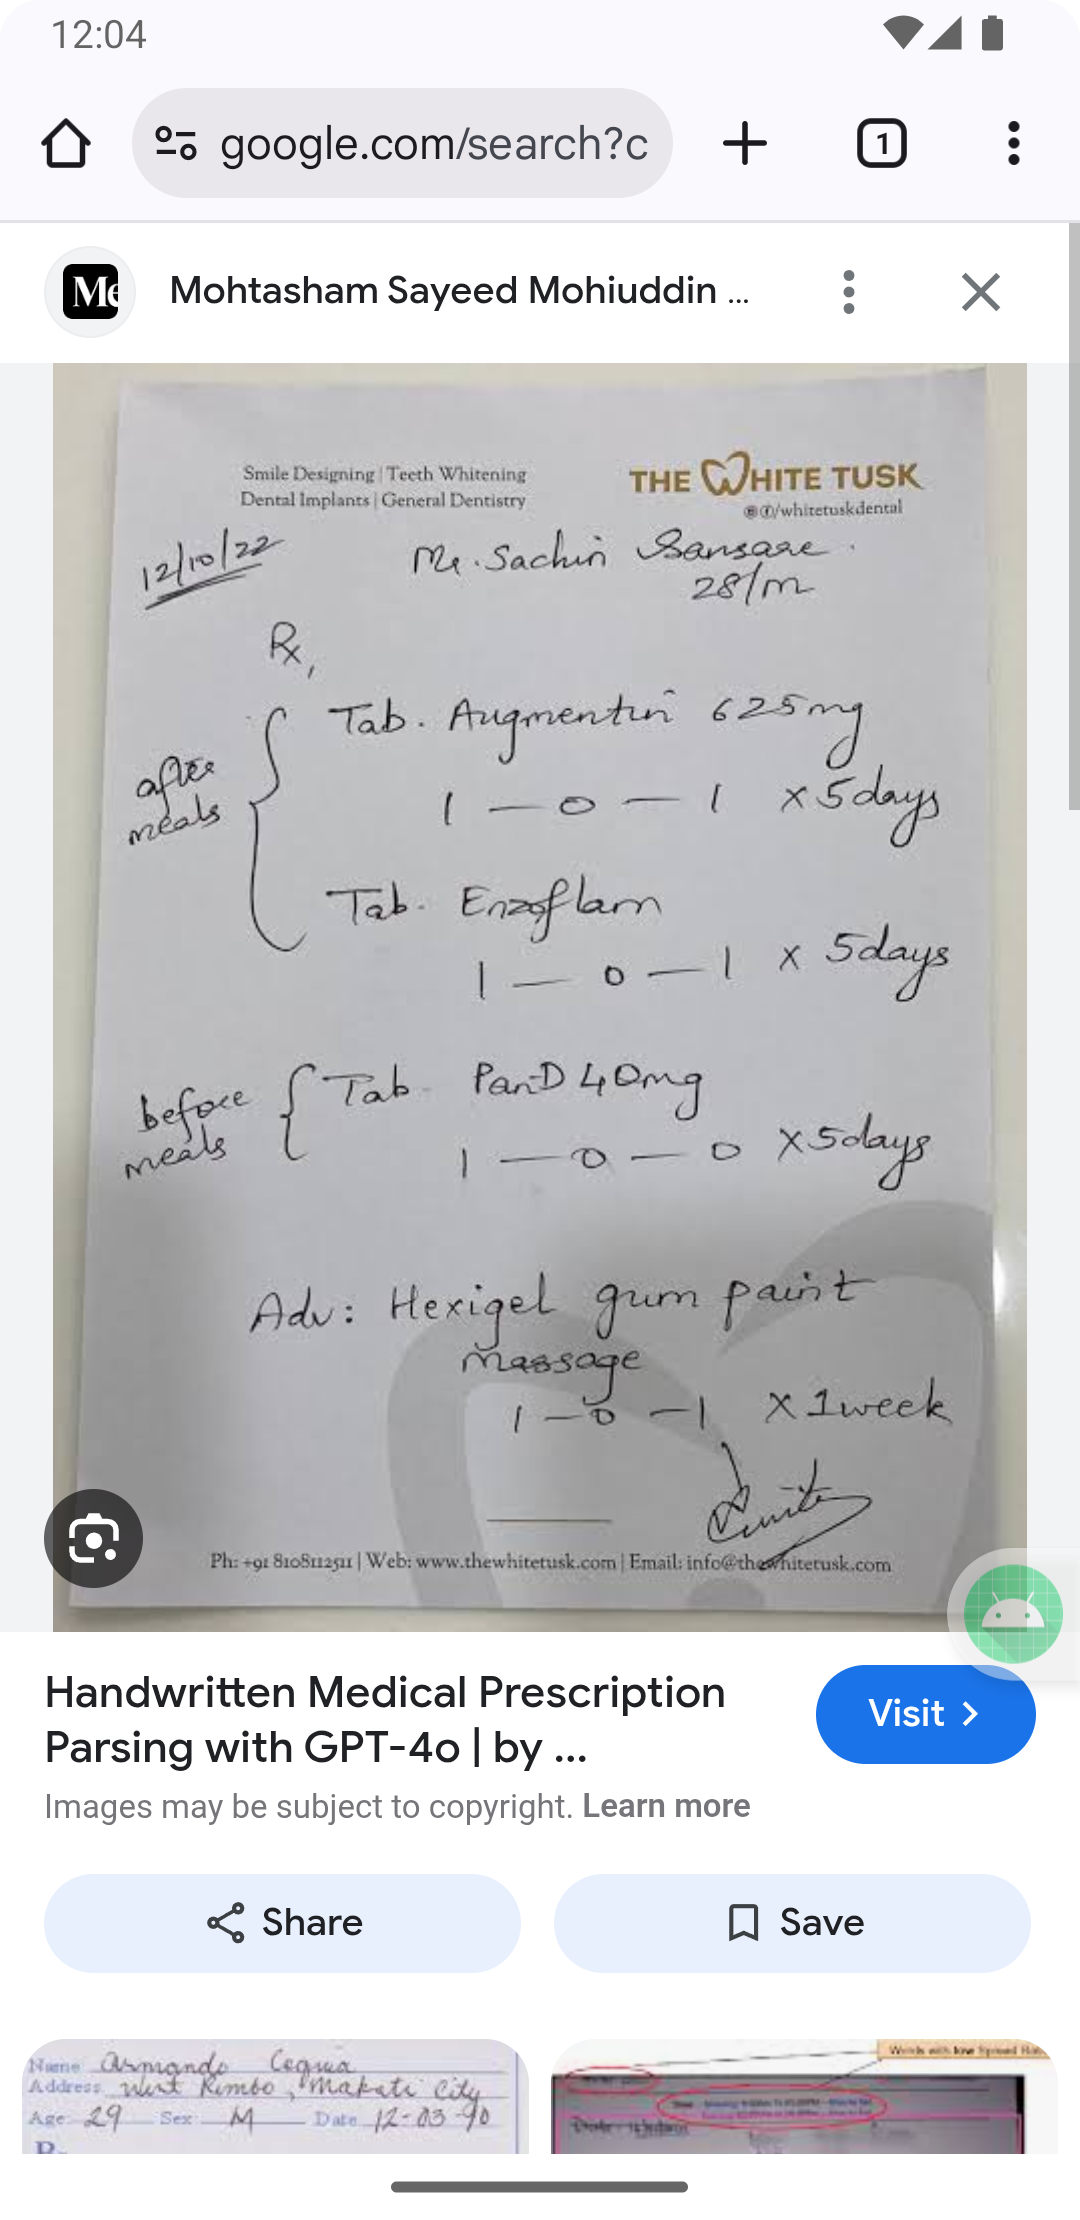 12:04
google.com/search?c
1
Me
Mohtasham Sayeed Mohiuddin ...
Smile Designing | Teeth Whitening
Dental Implants | General Dentistry
THE WHITE TUSK
/whitetuskdental
12/10/22
Mr. Sachin Sansare
28/m
Rx,
after
meals
Tab. Augmentin 625mg
1 — 0 — 1 x 5days
Tab. Enzoflam
1 — 0 — 1 x 5days
before
meals
Tab. PanD 40mg
1 — 0 — 0 x 5days
Adv: Hexigel gum paint
massage
1 — 0 — 1 x 1week
Ph: +91 8108112511 | Web: www.thewhitetusk.com | Email: info@thewhitetusk.com
Handwritten Medical Prescription
Parsing with GPT-4o | by ...
Visit
Images may be subject to copyright. Learn more
Share
Save
Name Armando
Address West Rembo, Makati City
Age 29 Sex M Date 12-03-90